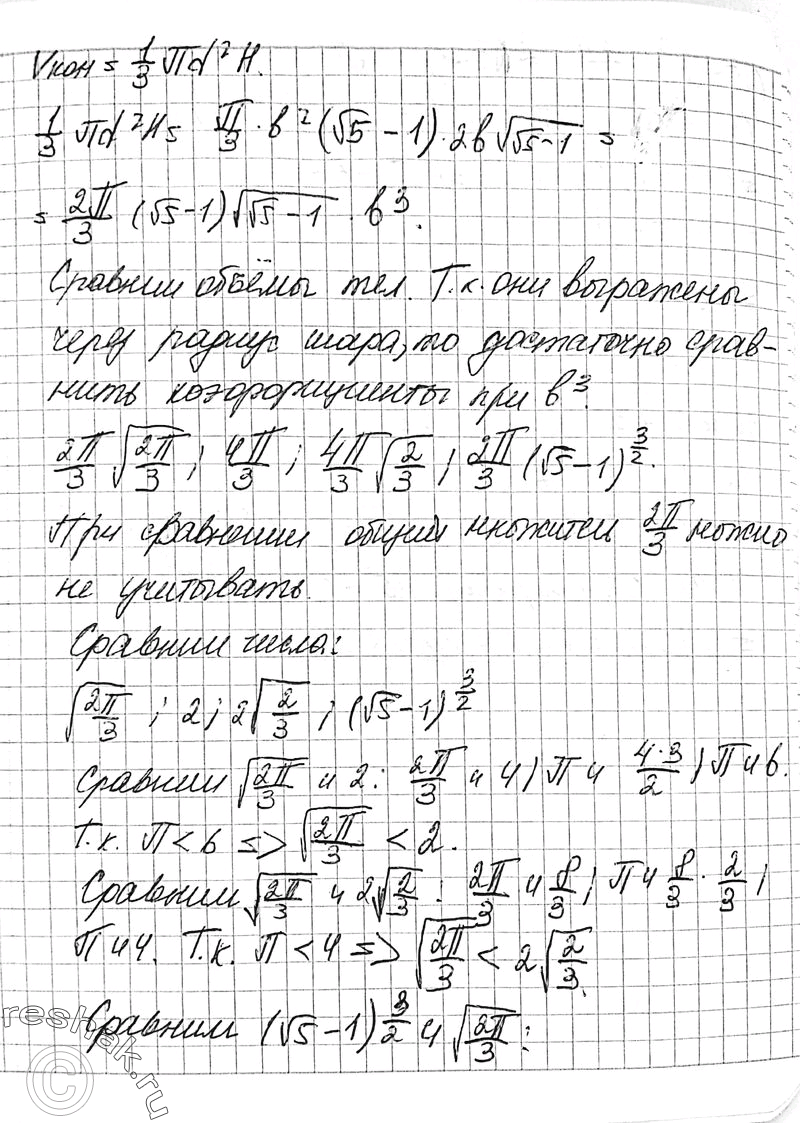 Vкон = 1/3 πd²H.
1/3 πd²H = π/3 · b²(√5 − 1) · 2b√(√5−1) =
= 2π/3 (√5−1)√(√5−1) · b³.
Сравним объёмы тел. Т.к. они выражены
через радиус шара, то достаточно срав-
нить коэффициенты при b³.
2π/3 √(2π/3) ; 4π/3 ; 4π/3 √(2/3) ; 2π/3 (√5−1)^(3/2).
При сравнении общий множители 2π/3 можно
не учитывать.
Сравним числа:
√(2π/3) ; 2 ; 2√(2/3) ; (√5−1)^(3/2)
Сравним √(2π/3) и 2 : 2π/3 и 4 ; π и (4·3)/2 ; π и 6.
Т.к. π < 6 => √(2π/3) < 2.
Сравним √(2π/3) и 2√(2/3) : 2π/3 и 8/3 ; π и 8/3 · 2/3 ;
π и 4. Т.к. π < 4 => √(2π/3) < 2√(2/3).
Сравним (√5−1)^(3/2) и √(2π/3) :
reshak.ru
©